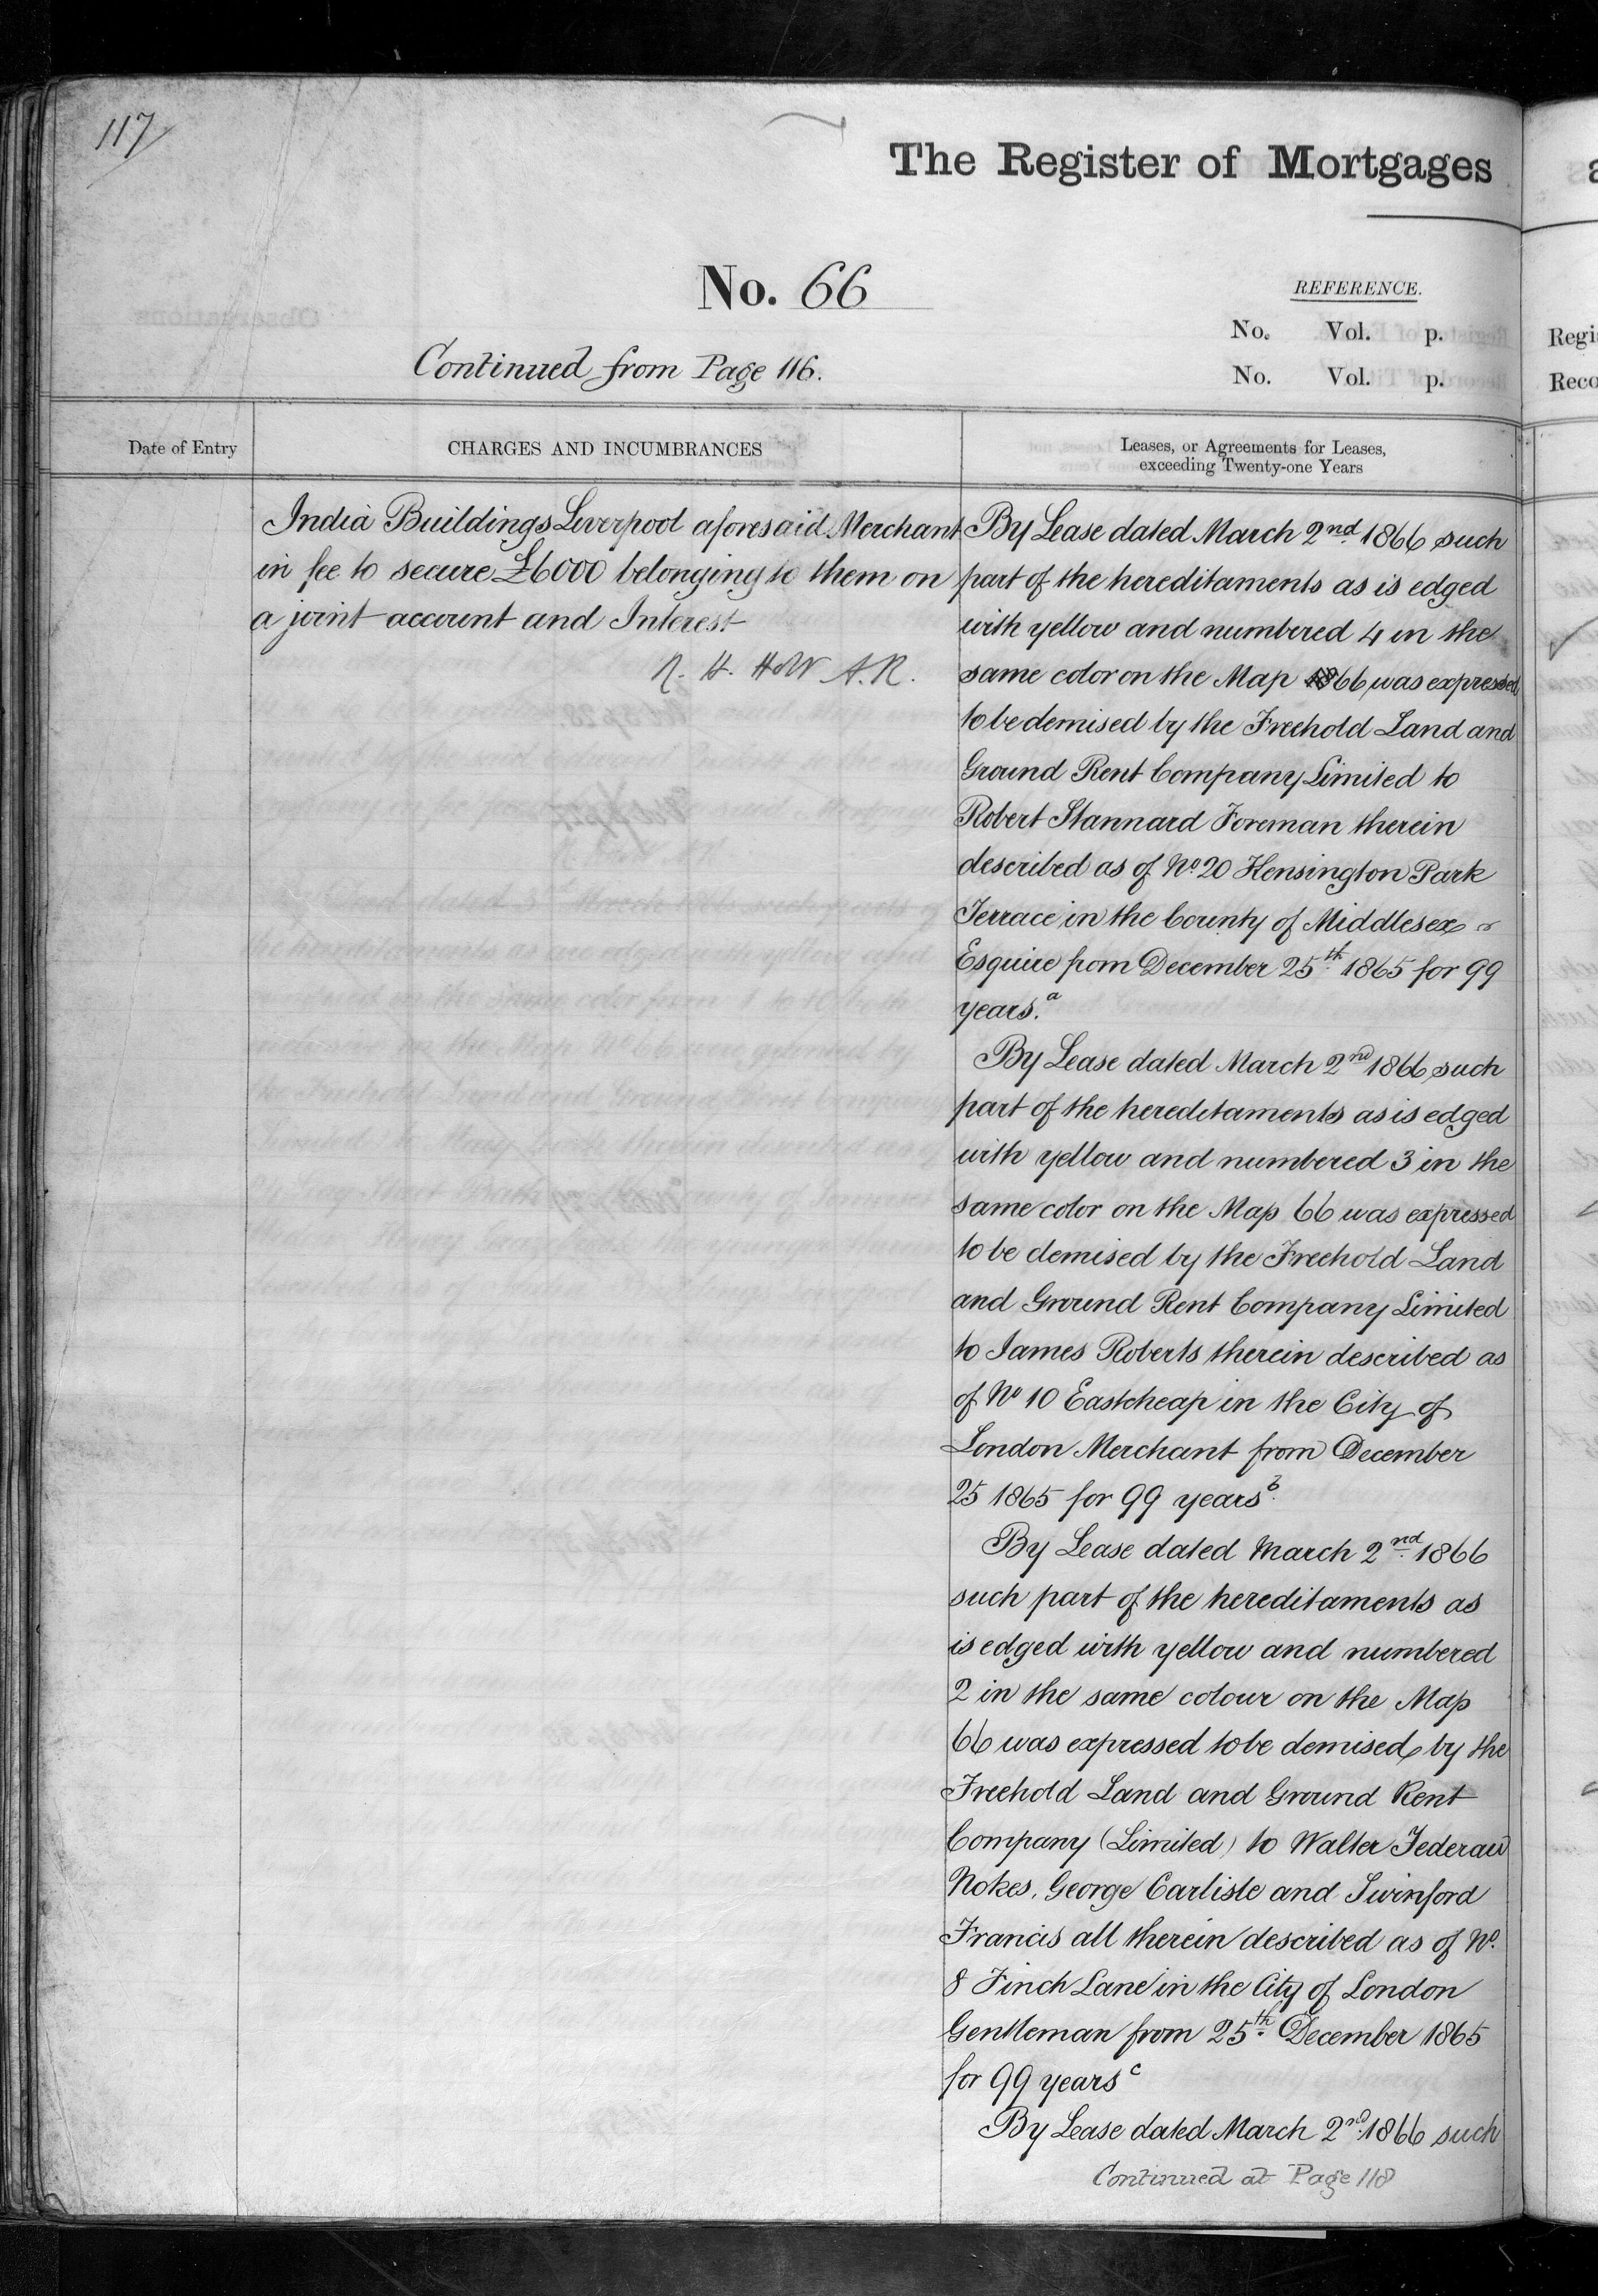 117
The Register of Mortgages
No. 66
REFERENCE.
No. Vol. p.
No. Vol. p.
Continued from Page 116.
Date of Entry
CHARGES AND INCUMBRANCES
Leases, or Agreements for Leases,
exceeding Twenty-one Years
India Buildings Liverpool aforesaid Merchant
in fee to secure £6000 belonging to them on
a joint account and Interest
By Lease dated March 2nd 1866 such
part of the hereditaments as is edged
with yellow and numbered 4 in the
same color on the Map 66 was expressed
to be demised by the Freehold Land and
Ground Rent Company Limited to
Robert Stannard Foreman therein
described as of No 20 Kensington Park
Terrace in the County of Middlesex
Esquire from December 25th 1865 for 99
years.a
By Lease dated March 2nd 1866 such
part of the hereditaments as is edged
with yellow and numbered 3 in the
same color on the Map 66 was expressed
to be demised by the Freehold Land
and Ground Rent Company Limited
to James Roberts therein described as
of No 10 Eastcheap in the City of
London Merchant from December
25 1865 for 99 years b
By Lease dated March 2nd 1866
such part of the hereditaments as
is edged with yellow and numbered
2 in the same colour on the Map
66 was expressed to be demised by the
Freehold Land and Ground Rent
Company (Limited) to Walter
Nokes, George Carlisle and Swinford
Francis all therein described as of No.
8 Finch Lane in the City of London
Gentleman from 25th December 1865
for 99 years c
By Lease dated March 2nd 1866 such
Continued at Page 118
Regi
Reco